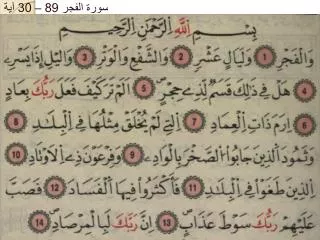 سورة الفجر 89 – 30 آية
بِسْمِ اللَّهِ الرَّحْمَٰنِ الرَّحِيمِ
وَالْفَجْرِ 1 وَلَيَالٍ عَشْرٍ 2 وَالشَّفْعِ وَالْوَتْرِ 3 وَاللَّيْلِ إِذَا يَسْرِ
4 هَلْ فِي ذَٰلِكَ قَسَمٌ لِّذِي حِجْرٍ 5 أَلَمْ تَرَ كَيْفَ فَعَلَ رَبُّكَ بِعَادٍ
6 إِرَمَ ذَاتِ الْعِمَادِ 7 الَّتِي لَمْ يُخْلَقْ مِثْلُهَا فِي الْبِلَادِ 8
وَثَمُودَ الَّذِينَ جَابُوا الصَّخْرَ بِالْوَادِ 9 وَفِرْعَوْنَ ذِي الْأَوْتَادِ 10
الَّذِينَ طَغَوْا فِي الْبِلَادِ 11 فَأَكْثَرُوا فِيهَا الْفَسَادَ 12 فَصَبَّ
عَلَيْهِمْ رَبُّكَ سَوْطَ عَذَابٍ 13 إِنَّ رَبَّكَ لَبِالْمِرْصَادِ 14